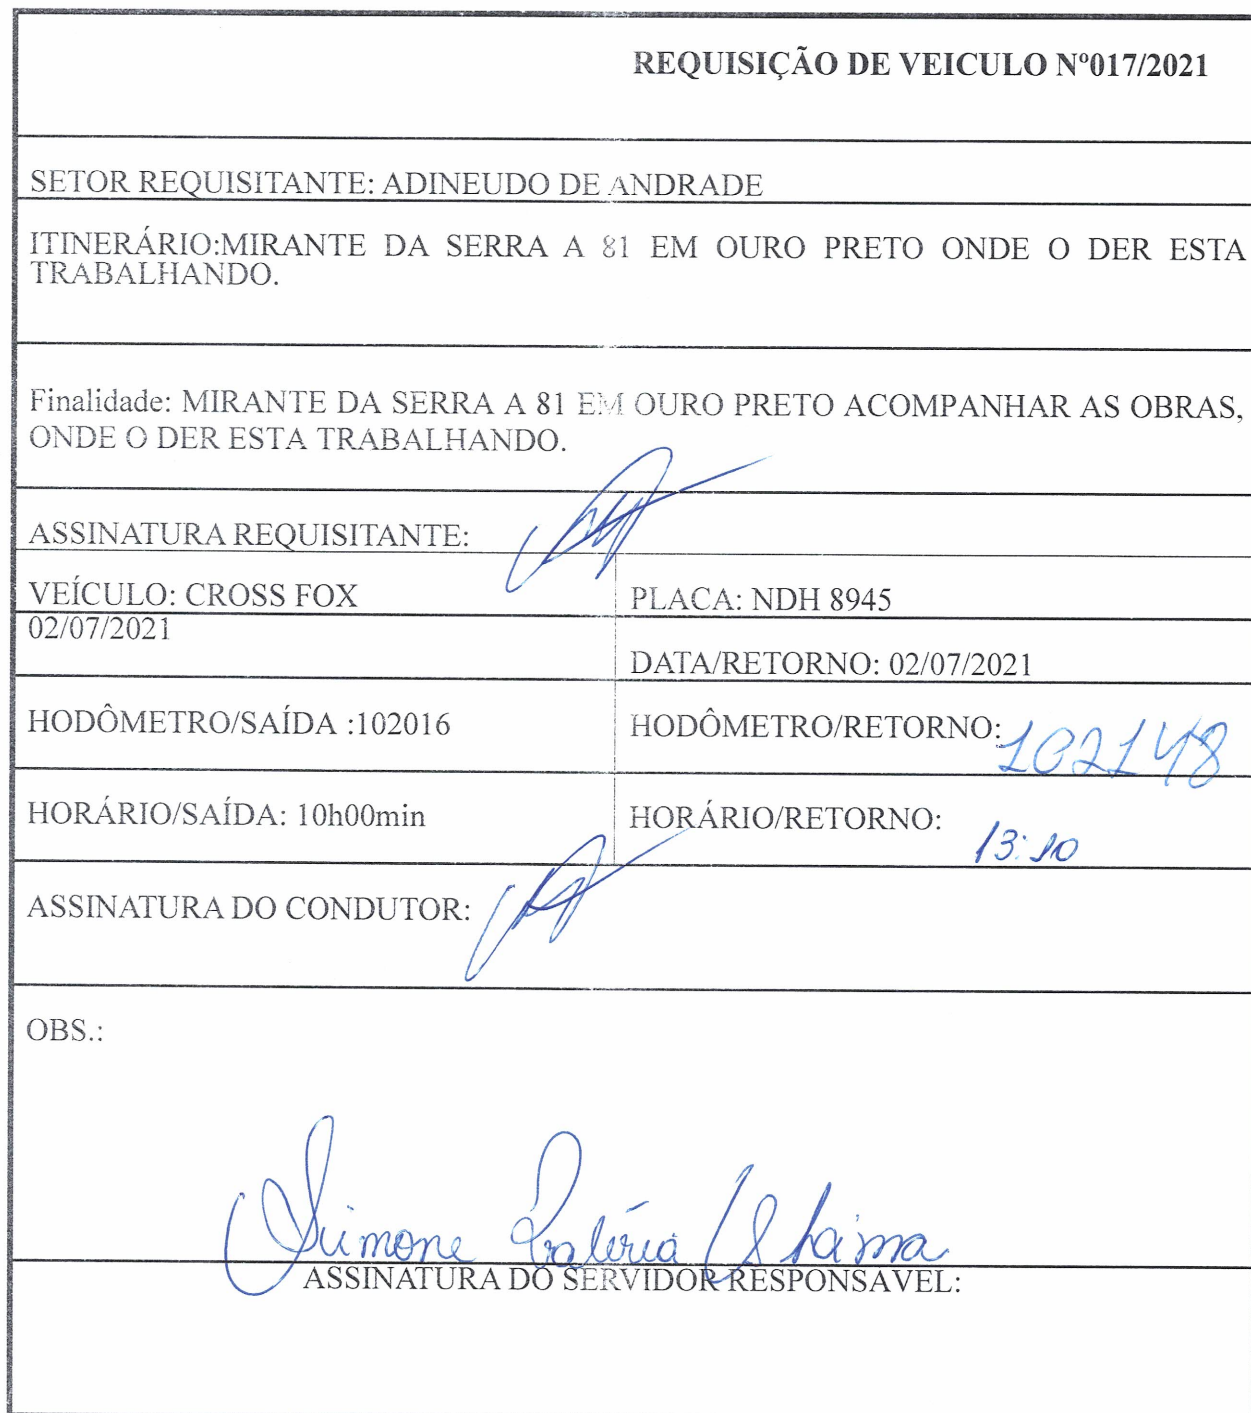 REQUISIÇÃO DE VEICULO Nº017/2021
SETOR REQUISITANTE: ADINEUDO DE ANDRADE
ITINERÁRIO:MIRANTE DA SERRA A 81 EM OURO PRETO ONDE O DER ESTA
TRABALHANDO.
Finalidade: MIRANTE DA SERRA A 81 EM OURO PRETO ACOMPANHAR AS OBRAS,
ONDE O DER ESTA TRABALHANDO.
ASSINATURA REQUISITANTE:
VEÍCULO: CROSS FOX
PLACA: NDH 8945
02/07/2021
DATA/RETORNO: 02/07/2021
HODÔMETRO/SAÍDA :102016
HODÔMETRO/RETORNO: 102148
HORÁRIO/SAÍDA: 10h00min
HORÁRIO/RETORNO: 13:10
ASSINATURA DO CONDUTOR:
OBS.:
Simone
ASSINATURA DO SERVIDOR RESPONSAVEL: